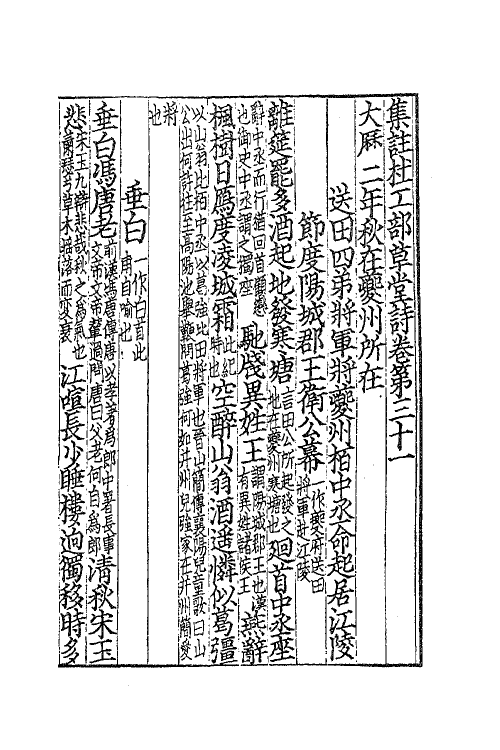 集註杜工部草堂詩卷第三十一
大曆二年秋在夔州所在
送田四弟將軍將夔州栢中丞命起居江陵
節度陽城郡王衛公幕一作夔府送田將軍赴江陵
離筵罷多酒起地發寒塘言田公所起發之地在夔州寒塘也廻首中丞座
辭中丞而行猶回首顧戀也御史中丞謂之獨座馳牋異姓王謂陽城郡王也漢有異姓諸侯王燕辭
楓樹日鴈度淩城霜此紀時也空醉山翁酒遥憐似葛彊
以山翁比栢中丞以葛強比田將軍也晉山簡傳襄陽兒童歌曰山
公出何許往至高陽池舉鞭問葛強何如幷州兒強家在幷州簡愛
將也
垂白一作白首此甫自喻也
垂白馮唐老前漢馮唐傳唐以孝著為郎中署長事文帝文帝輦過問唐曰父老何自為郎清秋宋玉
悲宋玉九辯悲哉秋之為氣也蕭瑟兮草木揺落而變衰江喧長少睡樓逈獨移時多